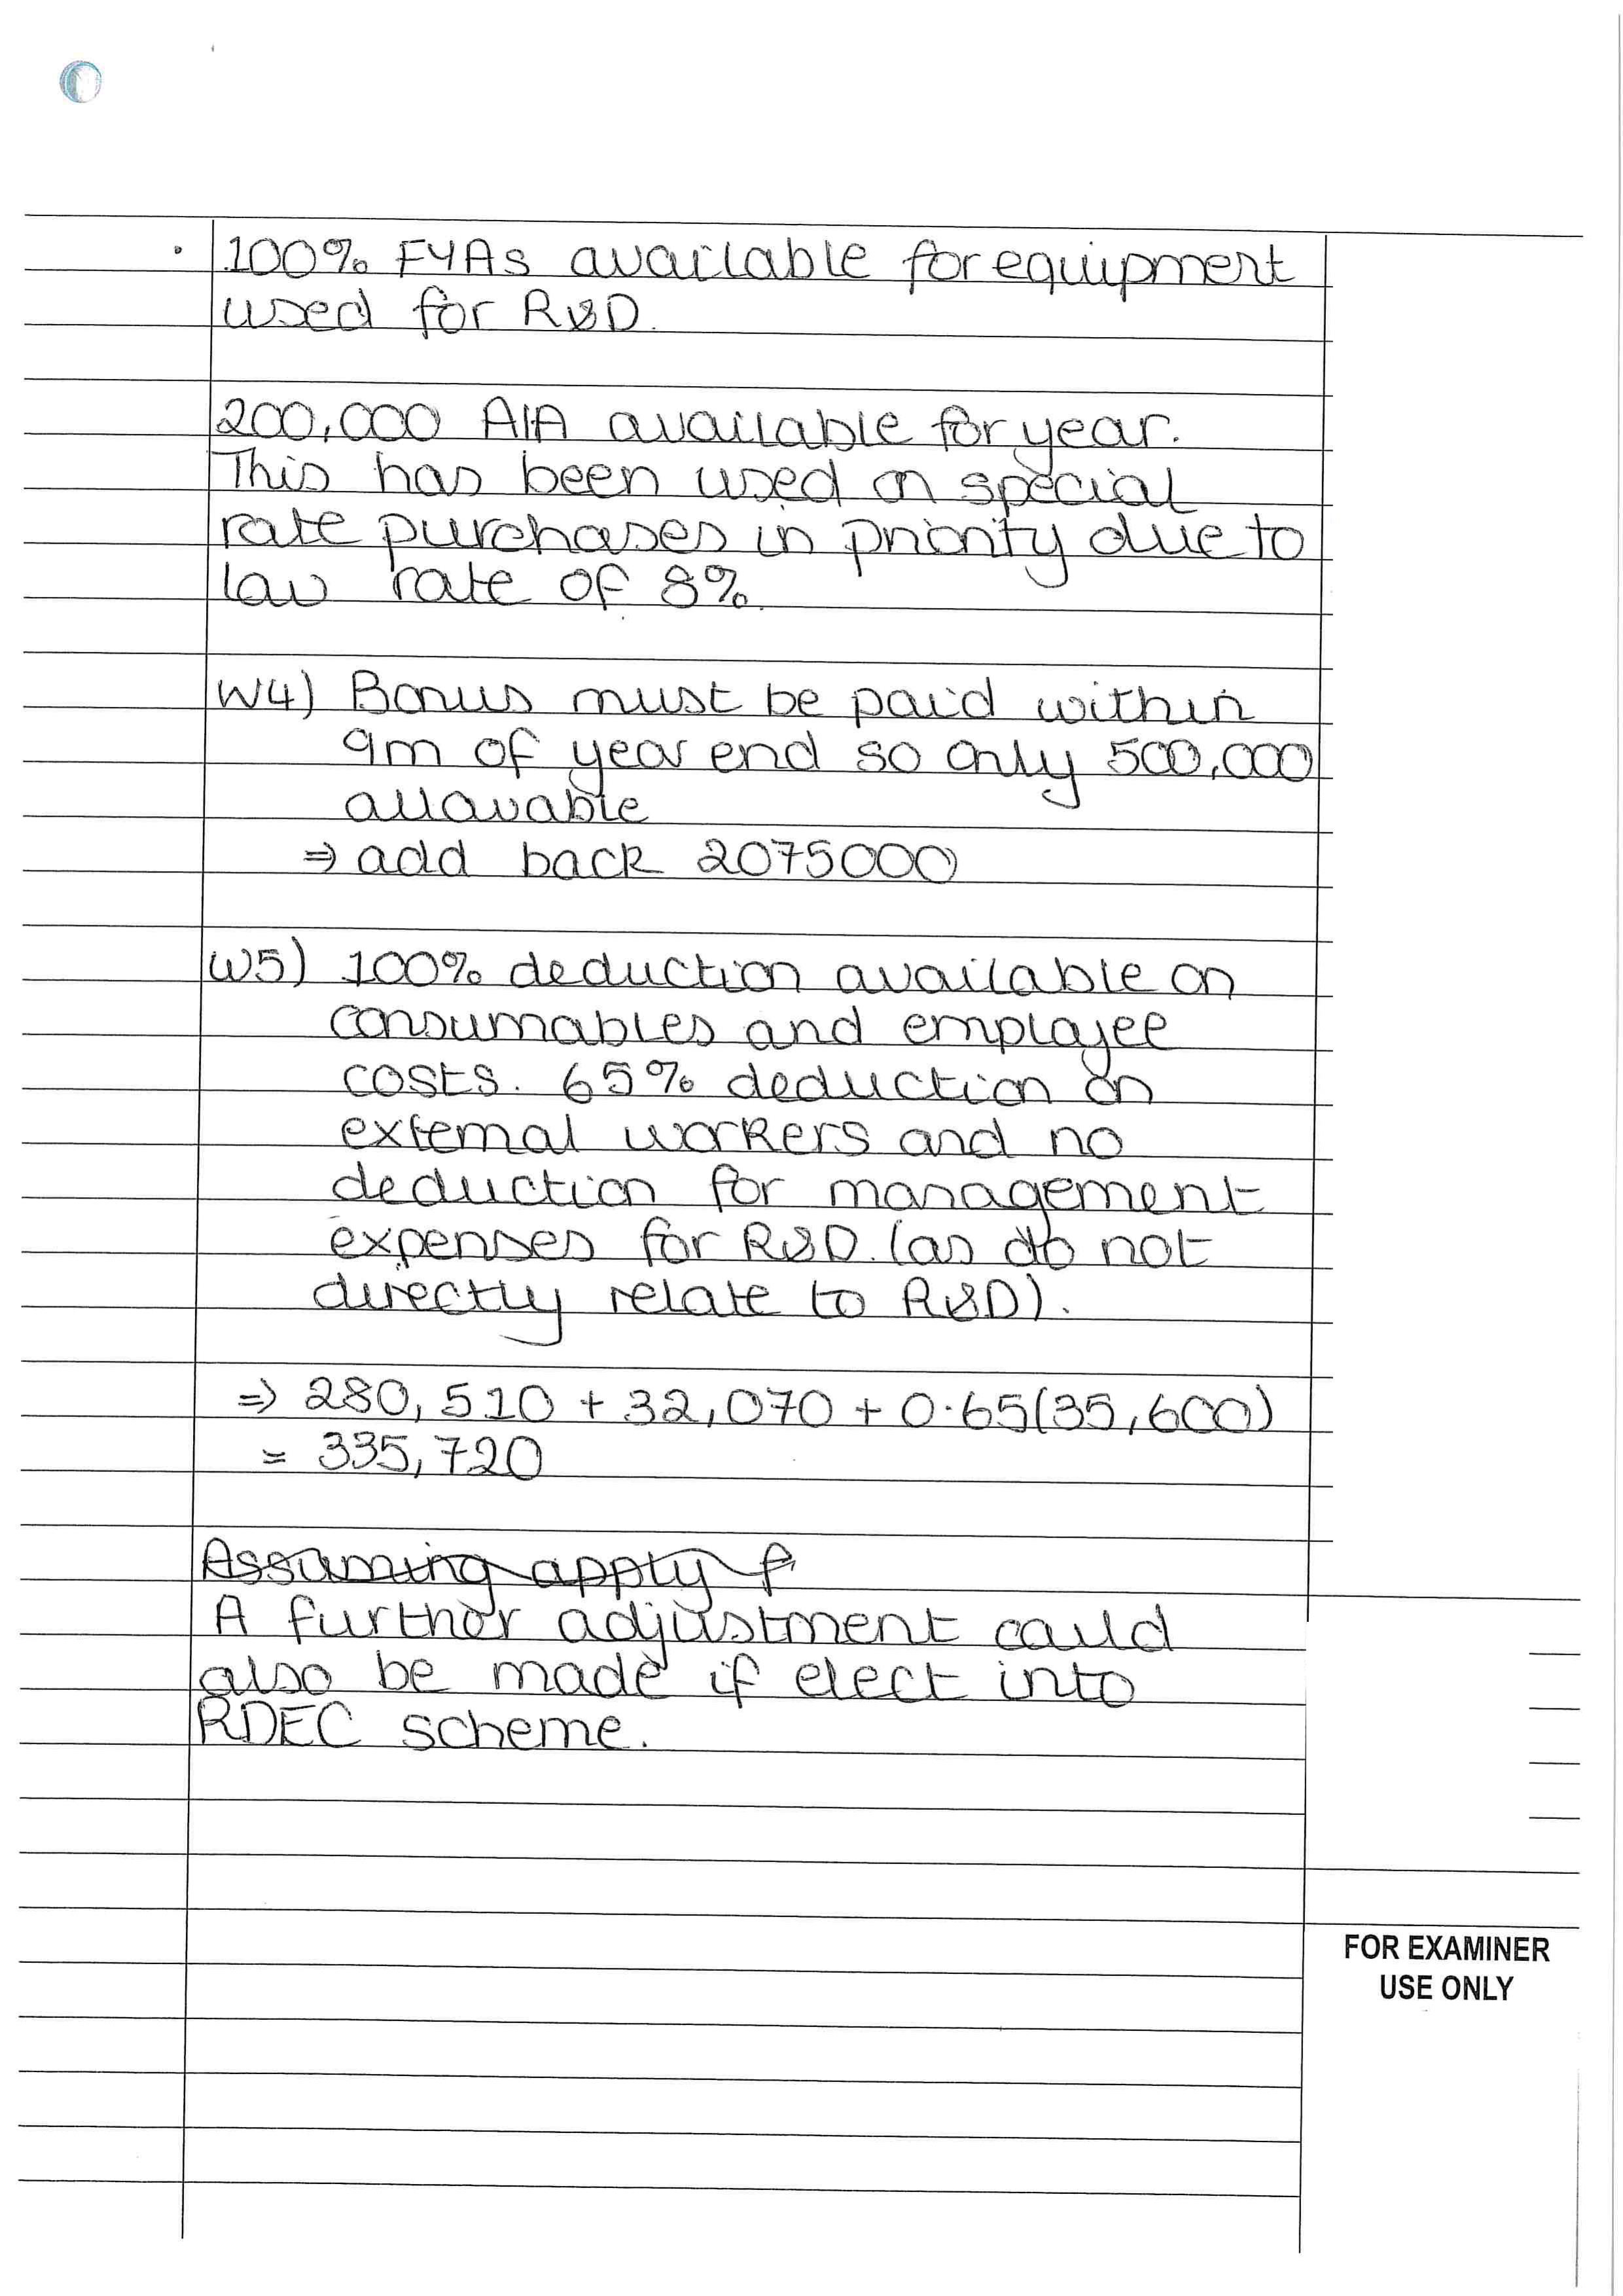 . 100% FYAs available for equipment
used for R&D.
200,000 AIA available for year.
This has been used on special
rate purchases in priority due to
low rate of 8%.
W4) Bonus must be paid within
9m of year end so only 500,000
allowable
⇒ add back 2075000
W5) 100% deduction available on
consumables and employee
costs. 65% deduction on
external workers and no
deduction for management
expenses for R&D. (as do not
directly relate to R&D).
⇒ 280,510 + 32,070 + 0.65(35,600)
= 335,720
Assuming apply f
A further adjustment could
also be made if elect into
RDEC scheme.
FOR EXAMINER
USE ONLY